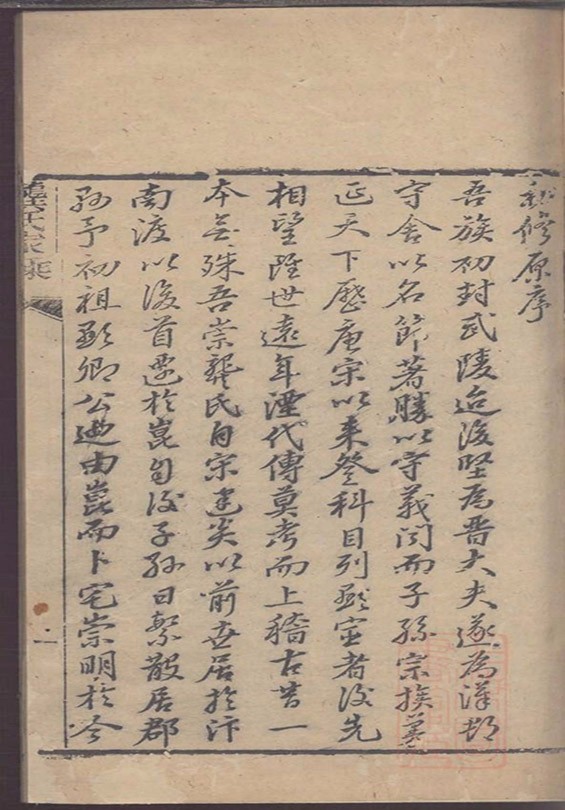 修原序
吾族初封武陵迨後堅為晉大夫遂為漢郡
守舍以名節著勝以守義聞而子孫宗族蔓
延天下歷唐宋以來登科目列顯宦者後先
相望雖世遠年湮代傳莫考而上稽古昔一
本無殊吾崇龔氏自宋建炎以前世居於汴
南渡以後首遷於崑自後子孫日繁散居郡
縣予初祖顯卿公迺由崑而卜宅崇明於今